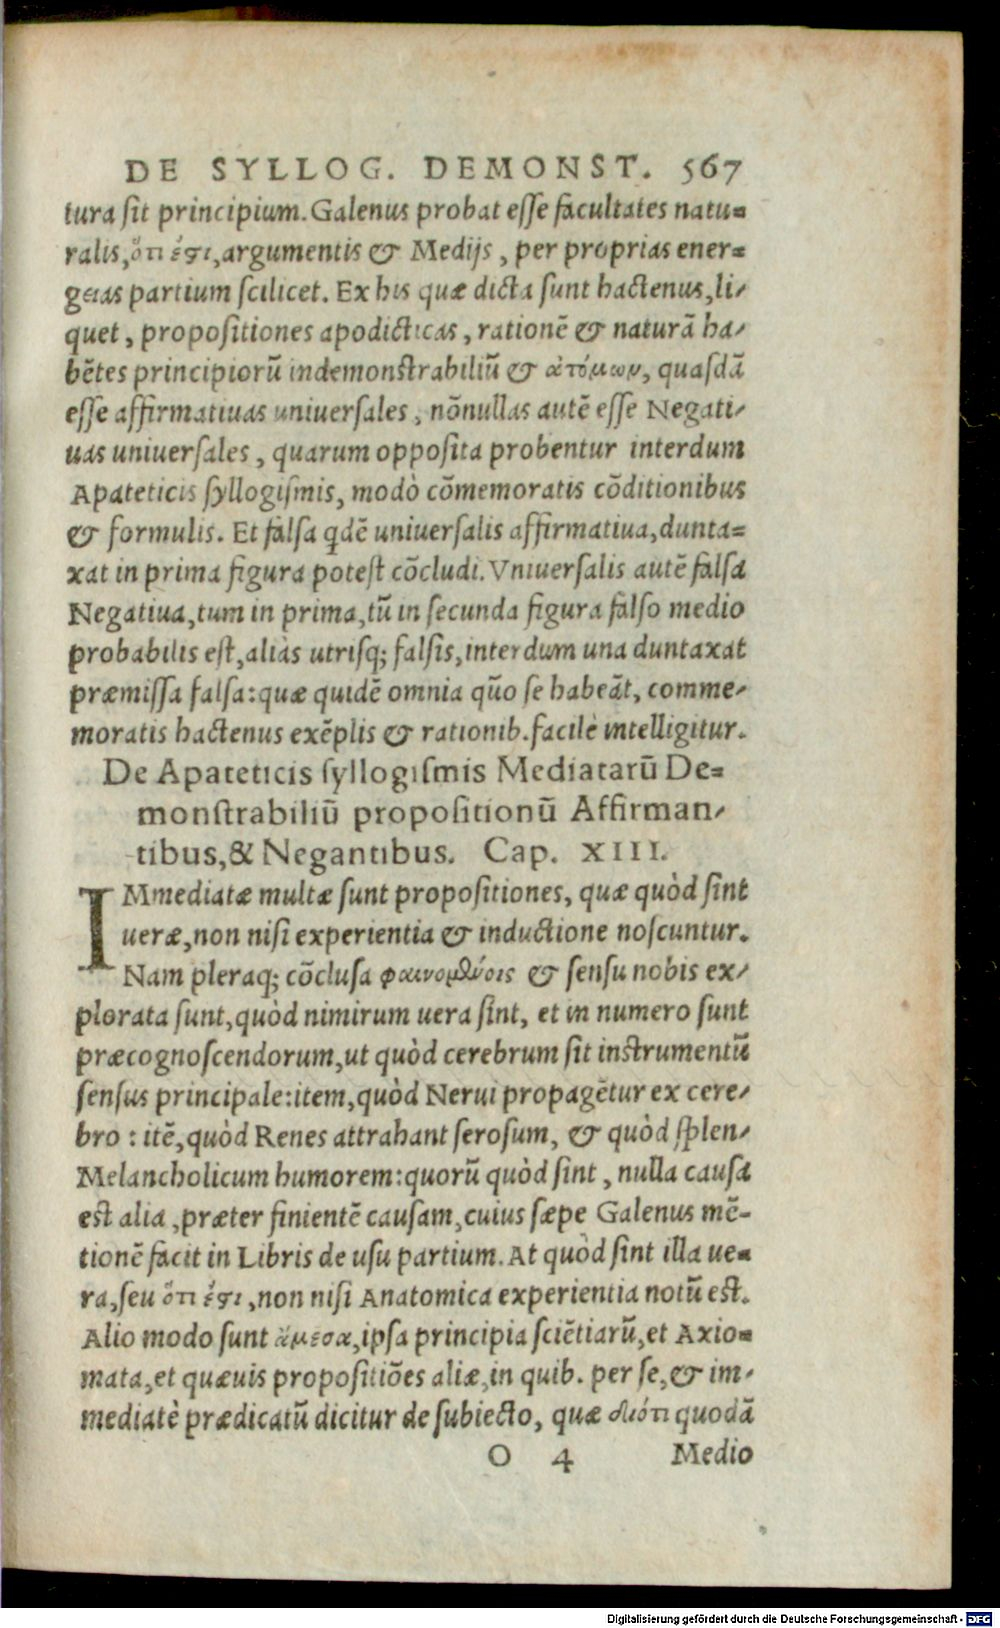 DE SYLLOG. DEMONST. 567
tura ſit principium. Galenus probat eſſe facultates natu=
ralis, ὅτι ἐστι, argumentis & Medijs, per proprias ener=
geias partium ſcilicet. Ex his quæ dicta ſunt hactenus, li-
quet, propoſitiones apodicticas, rationē & naturā ha-
bētes principiorū indemonstrabiliū & ἀτόμων, quaſdā
eſſe affirmatiuas uniuerſales, nōnullas autē eſſe Negati-
uas uniuerſales, quarum oppoſita probentur interdum
Apateticis ſyllogiſmis, modò cōmemoratis cōditionibus
& formulis. Et falſa qdē uniuerſalis affirmatiua, dunta=
xat in prima figura poteſt cōcludi. Vniuerſalis autē falſa
Negatiua, tum in prima, tū in ſecunda figura falſo medio
probabilis eſt, aliàs utriſq; falſis, interdum una duntaxat
præmiſſa falſa: quæ quidē omnia quō ſe habeāt, comme-
moratis hactenus exēplis & rationib. facilè intelligitur.
De Apateticis ſyllogiſmis Mediatarū De=
monſtrabiliū propoſitionū Affirman-
tibus, & Negantibus. Cap. XIII.
IMmediatæ multæ ſunt propoſitiones, quæ quòd ſint
ueræ, non niſi experientia & inductione noſcuntur.
Nam pleraq; cōcluſa φαινομένοις & ſenſu nobis ex-
plorata ſunt, quòd nimirum uera ſint, et in numero ſunt
præcognoſcendorum, ut quòd cerebrum ſit inſtrumentū
ſenſus principale: item, quòd Nerui propagētur ex cere-
bro: itē, quòd Renes attrahant ſeroſum, & quòd ſplen-
Melancholicum humorem: quorū quòd ſint, nulla cauſa
eſt alia, præter finientē cauſam, cuius ſæpe Galenus mē-
tionē facit in Libris de uſu partium. At quòd ſint illa ue=
ra, ſeu ὅτι ἐστι, non niſi Anatomica experientia notū eſt.
Alio modo ſunt ἄμεσα, ipſa principia ſciētiarū, et Axio=
mata, et quæuis propoſitiōes aliæ, in quib. per ſe, & im-
mediatè prædicatū dicitur de ſubiecto, quæ διότι quodā
O 4 Medio
Digitalisierung gefördert durch die Deutsche Forschungsgemeinschaft - DFG